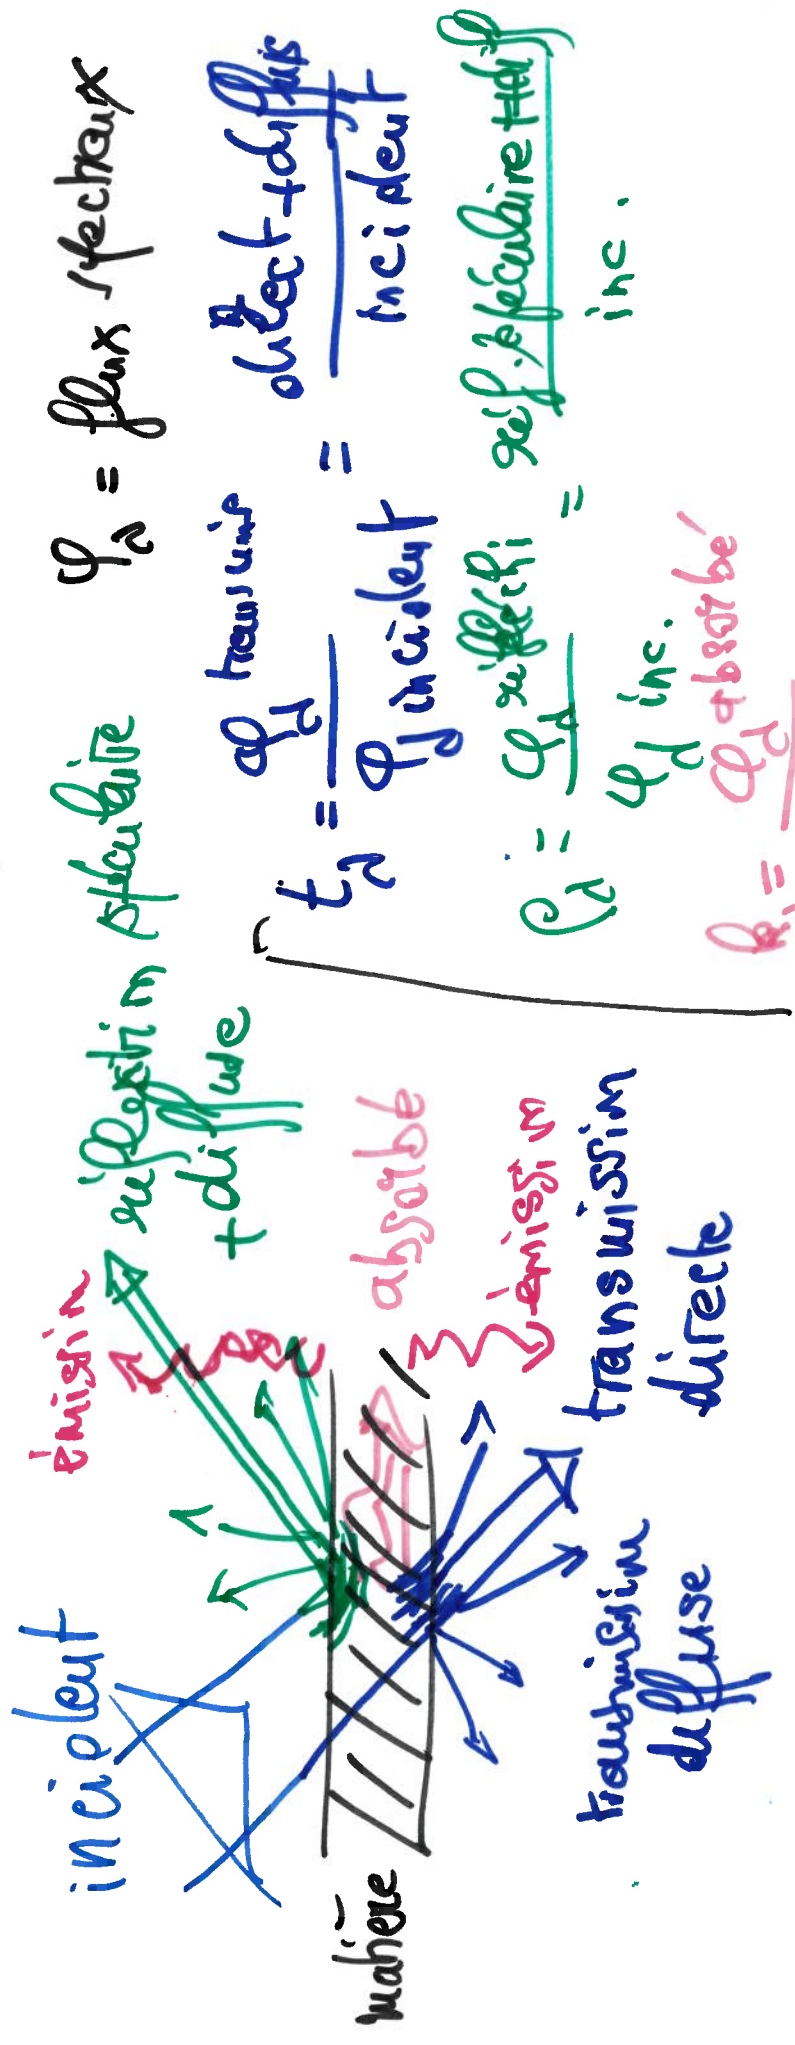 incident
émission
réflexion spéculaire
+ diffuse
absorbé
émission
matière
transmission
directe
transmission
diffuse
φλ = flux spectraux
tλ = φλ transmis / φλ incident = direct + diffus / incident
ρλ = φλ réfléchi / φλ inc. = réf. spéculaire + dif / inc.
φλ absorbé